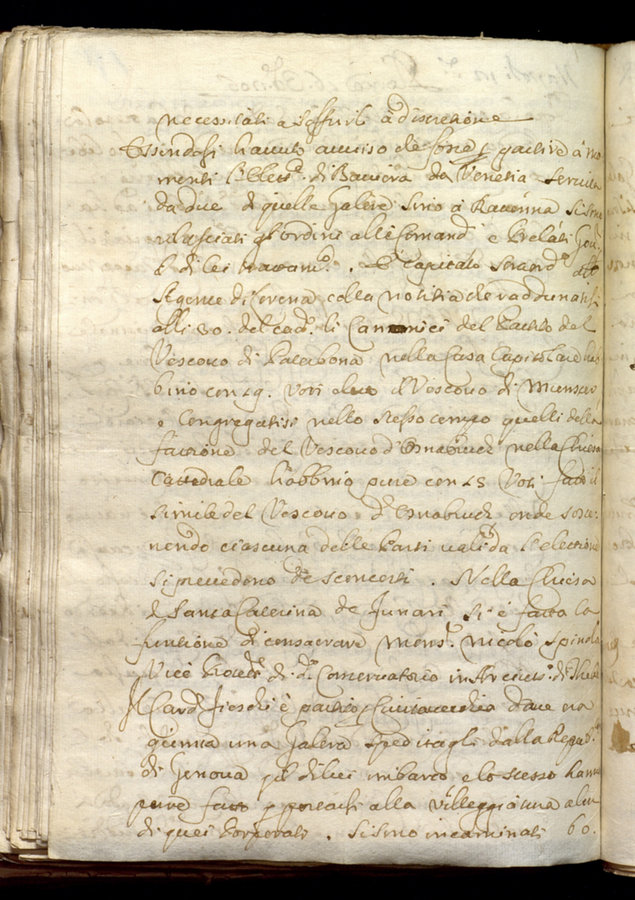 necessitati a soffrirli a discretione
Essendosi havuto avviso che fosse p partire à mo
menti l'Elett.ᵉ di Baviera da Venetia servita
da due di quelle Galere sino à Ravenna si sono
rilasciati gl'ordini alli Comand.ⁱ e Prelati Gov.ⁱ
di lei
Agente di colla notitia che raddunatisi
alli 30. del cad.ᵒ li Canonici del Partito del
Vescovo di Paterbona nella Casa Capitolare hab
bino con 19. Voti eletto il Vescovo di Munster
e Congregatisi nello stesso tempo quelli della
fattione del Vescovo d'Osnabruch nella Chiesa
Cattedrale habbino pure con 15 Voti fatto il
simile del Vescovo d'Osnabruch onde soste-
nendo ciascuna delle Parti valida l'elettione
si prevedono de sconcerti. Nella Chiesa
di Santa Caterina de Funari si è fatta la
funtione di consacrare Mons.ʳ Nicolò Spinola
Vice di d.ᵒ Conservatorio in Arcives.ᵒ di
Il Card. Fieschi è partito p Civitavecchia dove era
giunta una Galera speditagli dalla Repub.ᶜᵃ
di Genova p il di lui imbarco e lo stesso hanno
pure fatto p portarsi alla villeggiatura alcu
di quei Porporati. Si sono incaminati 60.